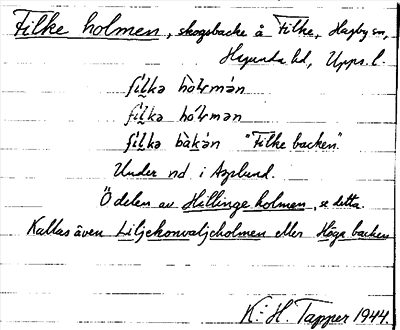 Filke holmen, skogsbacke å Filke, Hagby sn,
Hagunda hd, Upps. l.
fílkə hòlmán
fílkə hólmən
fílkə bàkán "Filke backen".
Under nd i Asplund.
Ö delen av Hällinge holmen, se detta.
Kallas även Liljekonvaljeholmen eller Höga backen
K.-H. Tapper 1944.